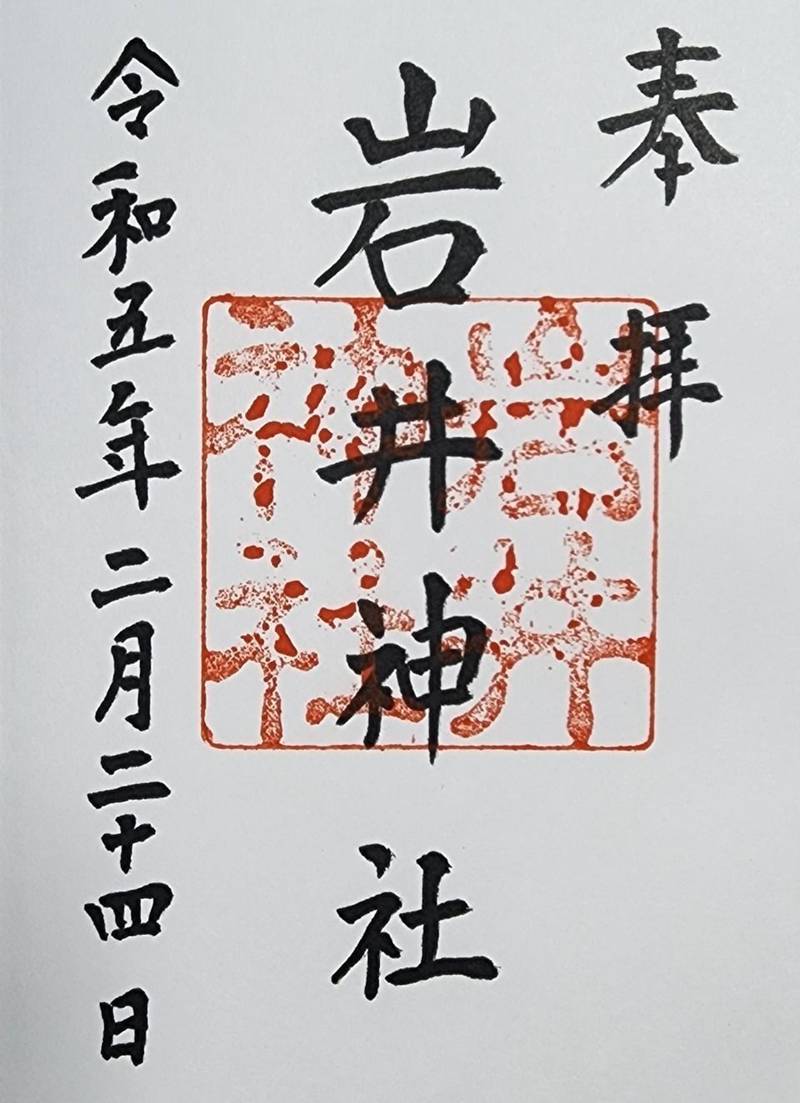 奉拝
岩井神社
令和五年二月二十四日
岩井
神社